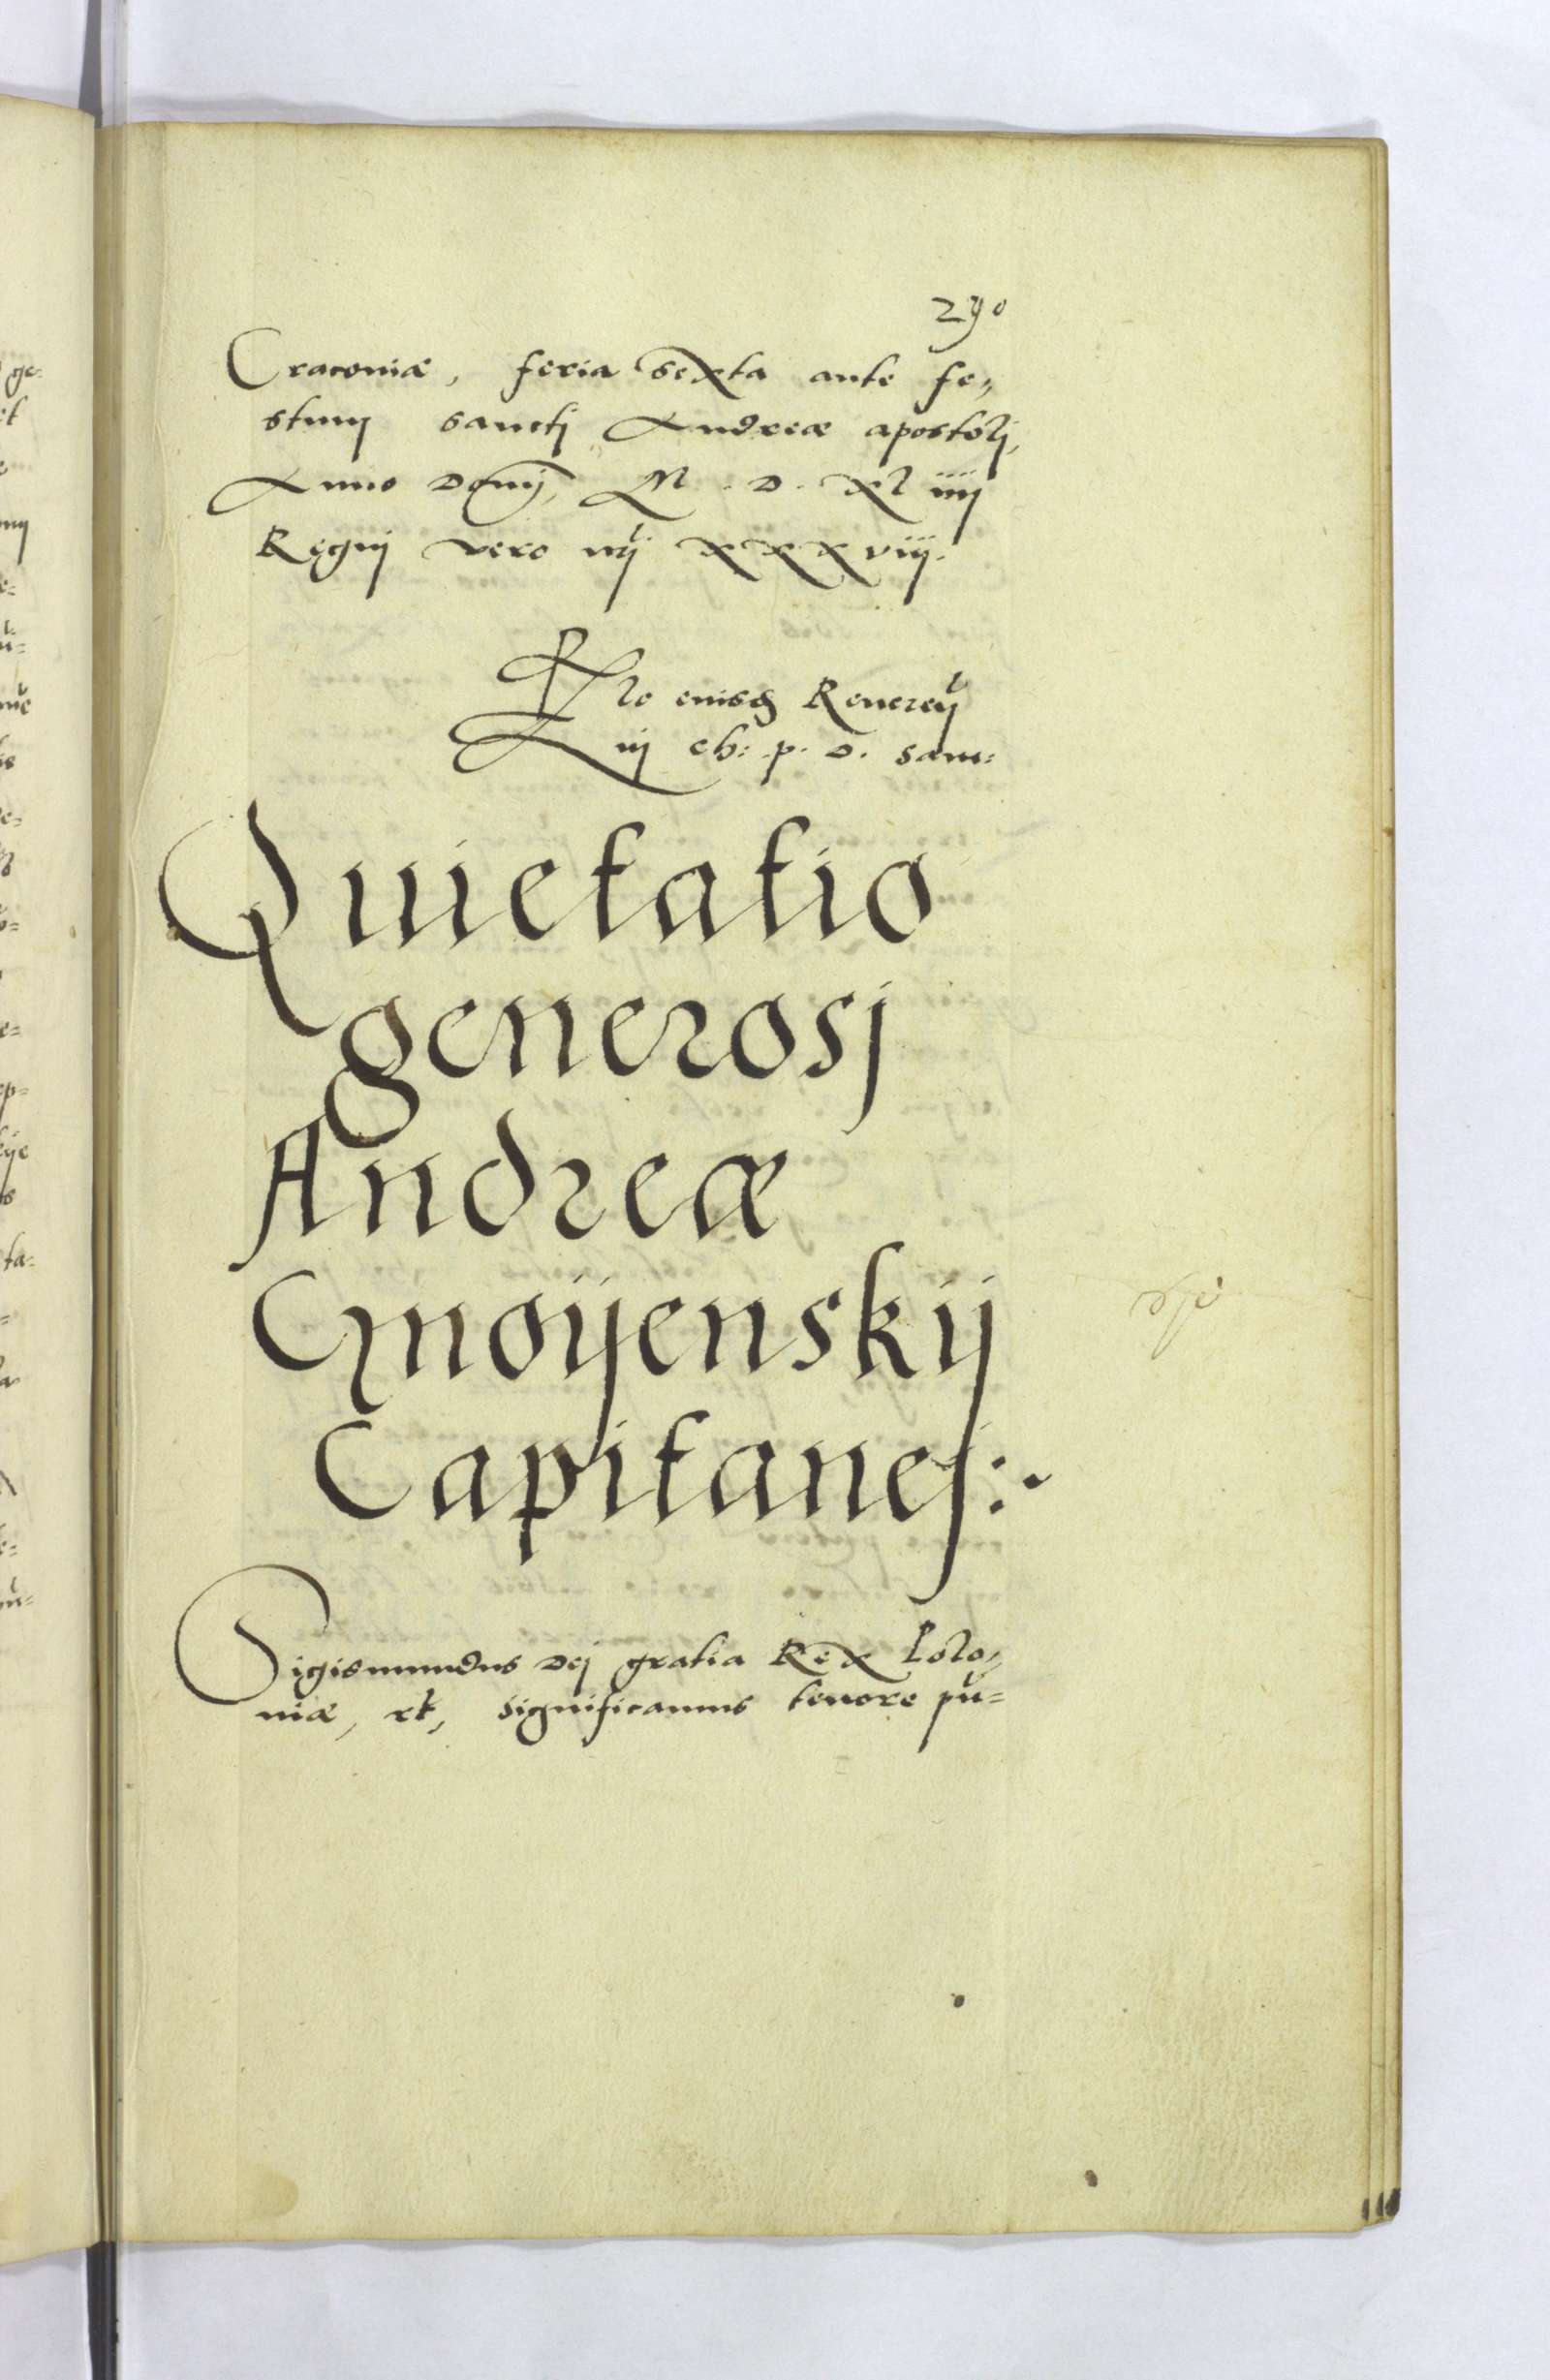 290
Cracoviæ, feria sexta ante fe=
stum sanctj Andreæ apostolj,
Anno Domj, M. D. XL iiij
Regnj vero nrj xxxviij.
Rlo eiusdem Reverendi
in ch: p. d. Sam:
Quietatio
generosj
Andreæ
Cmoijenskij
Capitanej:~
Sigismundus Dej gratia Rex Polo=
niæ, etc, Significamus tenore pn=